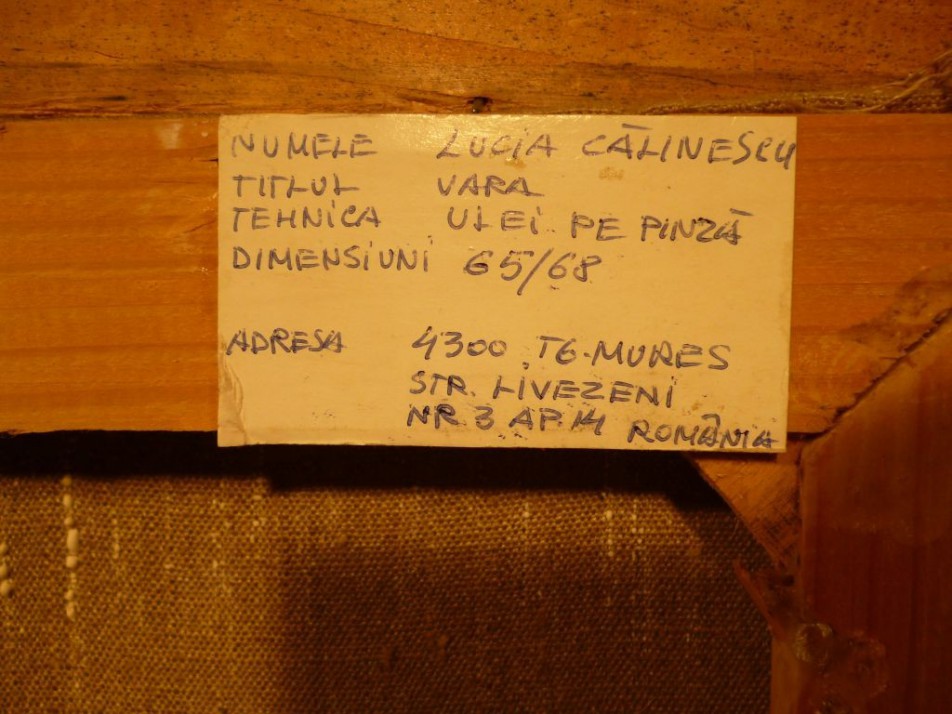 NUMELE LUCIA CĂLINESCU
TITLUL VARA
TEHNICA ULEI PE PINZĂ
DIMENSIUNI 65/68
ADRESA 4300 TG-MURES
STR. LIVEZENI
NR 3 AP.14 ROMÂNIA